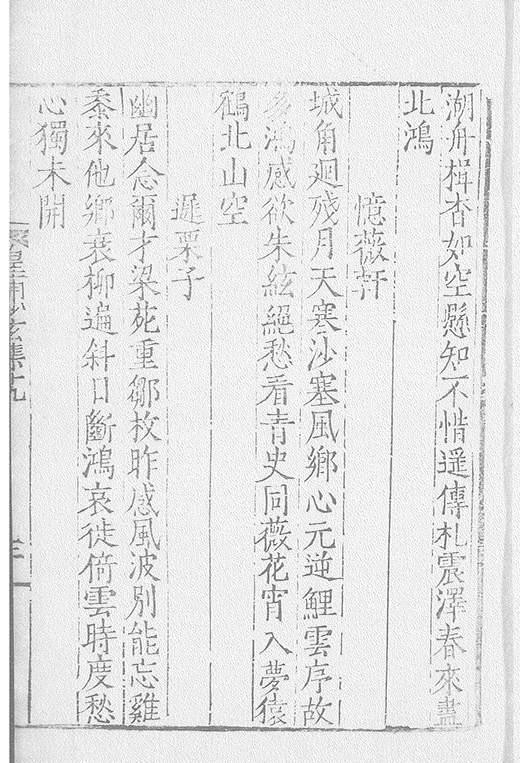 湖舟楫杳如空懸知不惜遥傳札震澤春來盡
北鴻
憶薇軒
城角迴殘月天寒沙塞風鄉心元逆鯉雲序故
多鴻感欲朱絃絕愁看青史同薇花宵入夢猿
鶴北山空
遲栗子
幽居念爾才梁苑重鄒枚昨感風波別能忘雞
黍來他鄉衰柳遍斜日斷鴻哀徙倚雲時度愁
心獨未開
皇甫少玄集
三